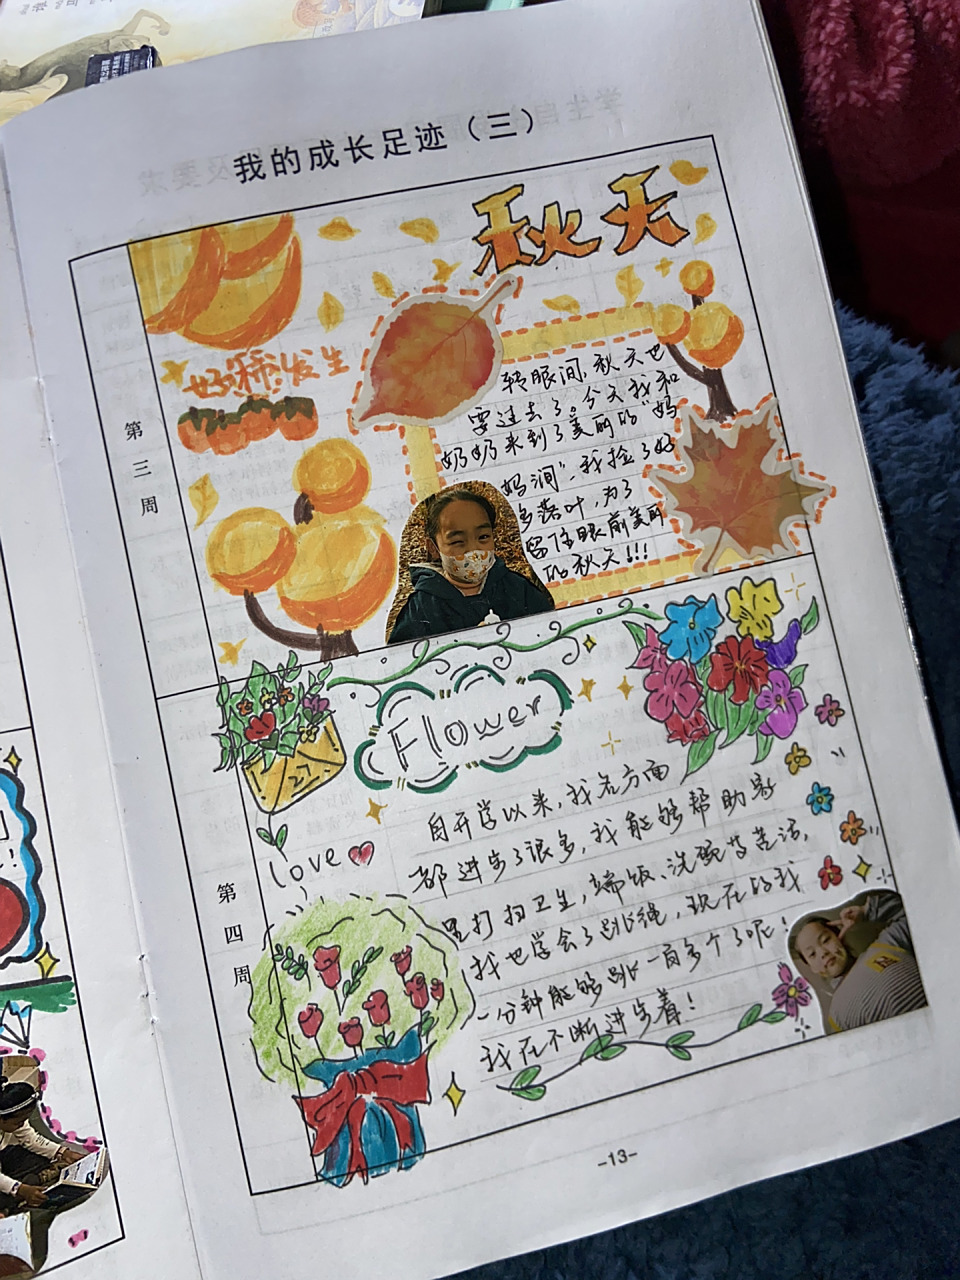 我的成长足迹（三）
秋天
好柿发生
第三周
转眼间，秋天也
要过去了。今天我和
奶奶来到了美丽的“妈
妈涧”，我捡了好
多落叶，为了
留住眼前美丽
的秋天！！！
Flower
love
第四周
自开学以来，我各方面
都进步了很多，我能够帮助家
里打扫卫生，端饭、洗碗等等活，
我也学会了跳绳，现在的我
一分钟能够跳一百多个了呢！
我在不断进步着！
-13-